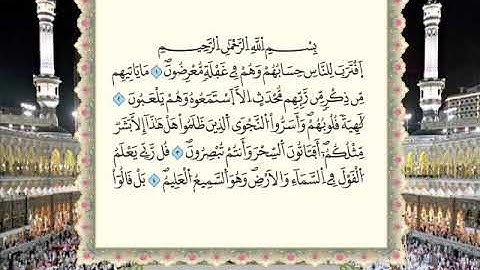 بِسْمِ اللَّهِ الرَّحْمَٰنِ الرَّحِيمِ
اقْتَرَبَ لِلنَّاسِ حِسَابُهُمْ وَهُمْ فِي غَفْلَةٍ مُعْرِضُونَ ۝١ مَا يَأْتِيهِمْ
مِنْ ذِكْرٍ مِنْ رَبِّهِمْ مُحْدَثٍ إِلَّا اسْتَمَعُوهُ وَهُمْ يَلْعَبُونَ ۝٢
لَاهِيَةً قُلُوبُهُمْ وَأَسَرُّوا النَّجْوَى الَّذِينَ ظَلَمُوا هَلْ هَٰذَا إِلَّا بَشَرٌ
مِثْلُكُمْ أَفَتَأْتُونَ السِّحْرَ وَأَنْتُمْ تُبْصِرُونَ ۝٣ قُلْ رَبِّي يَعْلَمُ
الْقَوْلَ فِي السَّمَاءِ وَالْأَرْضِ وَهُوَ السَّمِيعُ الْعَلِيمُ ۝٤ بَلْ قَالُوا